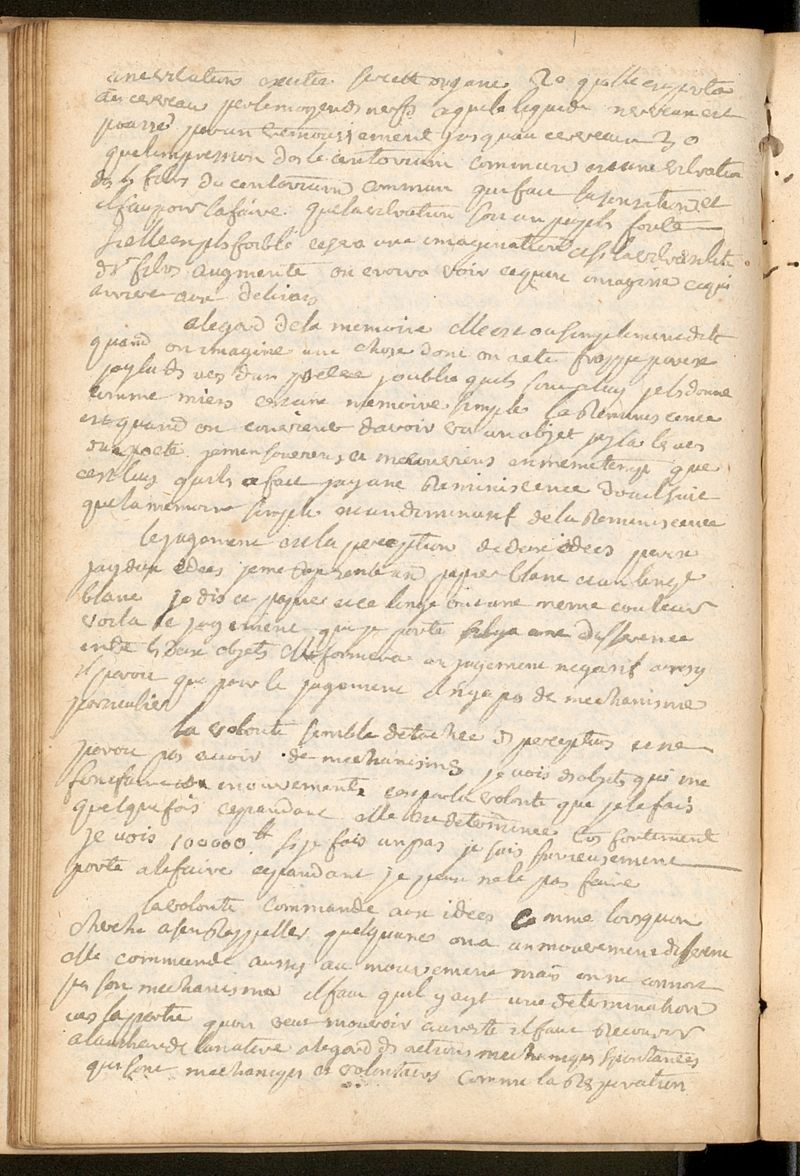 une vibration excitée sur cet organe 2o quelle est portée
au cerveau par le moyen des nerfs laquelle liquide nerveux est
poussé par un remoussement jusqu'au cerveau 3o
que limpression dos le centorium commun est une vibration
des fibres du centorium commun qui fait la sensation et
il faut pour la faire que la vibration soit un peu plus forte
si elle en plus foible cesera une imagination si la vibration
ds fibres augmente on croira voir ce quon imagine ce qui
arrive aux delires
a legard de la memoire elle est ou simplement dite
quand on imagine une chose dont on a eté frappé
jay lu ds vers dun poete joublie quils sont a luy je ls donne
comme miens cest une memoire simple la Reminiscence
est quand on convient davoir vu un objet jay lu le vers
dun poete jamen souviens en meme temps que
cest luy qui ls a fait jay une Reminiscence dou il suit
que la memoire simple est un diminutif de la Reminiscence
le jugement est la perception de deux idées
jay deux idées je me represente un papier blanc et un linge
blanc je dis ce papier et ce linge ont une meme couleur
voila le jugement que je porte sil y a une difference
entre ls deux objets elle formera un jugement negatif
il paroit que pour le jugement il ny a pas de mechanisme
particulier
la volonté semble detachee ds perceptions et ne
paroit pas avoir de mechanisme je vois ds objets qui me
font faire un mouvement cest par la volonté que je le fais
quelquefois cependant elle est determinée tres fortement
je vois 100000 lt si je fais un pas je suis furieusement
porté a le faire cependant je peux ne le pas faire
la volonté commande aux idées comme lorsquon
cherche a sen Rappeller quelquunes on a un mouvement different
elle commande aussy au mouvement mais on ne connoit
pas son mechanisme il faut quil y ayt une determination
vers la partie quon veut mouvoir au reste il faut Recourir
a lautheur de la nature a legard ds actions mechaniques spontanées
qui sont mechaniques et volontaires comme la Respiration